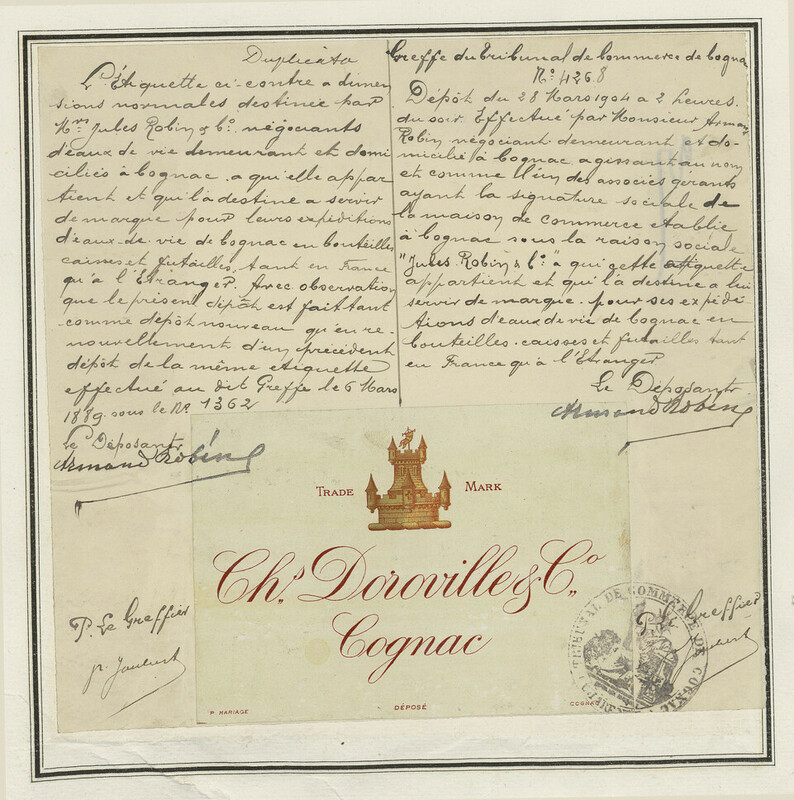 Duplicata
L'Étiquette ci-contre a dimen
sions normales destinée par
Mrs Jules Robin & Co. négociants
d'eaux de vie demeurant et domi
ciliés à Cognac, a qui elle appar
tient et qui la destine a servir
de marque pour leurs expéditions
d'eaux-de-vie de Cognac en bouteilles
caisses et futailles, tant en France
qu'à l'Etranger. Avec observation
que le présent dépôt est fait tant
comme dépôt nouveau qu'en re-
nouvellement d'un précédent
dépôt de la même etiquette
effectué au dit Greffe le 6 Mars
1889 sous le No 1362
Le Déposant
Armand Robin
P. Le Greffier
p. Joubert
Greffe du Tribunal de Commerce de Cognac
No. 4268
Dépôt du 28 Mars 1904 a 2 heures.
du soir. Effectué par Monsieur Arman
Robin négociant demeurant et do-
micilié à Cognac agissant au nom
et comme l'un des associés gérants
ayant la signature sociale de
la maison de commerce etablie
à Cognac sous la raison sociale
"Jules Robin & Co." a qui cette etiquette
appartient et qui la destine a lui
servir de marque. pour ses expédi
tions d'eaux de vie de Cognac en
bouteilles. caisses et futailles tant
en France qu'à l'Etranger
Le Déposant
Armand Robin
TRADE MARK
Chs. Doroville & Co.
Cognac
P. MARIAGE
DÉPOSÉ
COGNAC
P. Le Greffier
Joubert
TRIBUNAL DE COMMERCE DE COGNAC